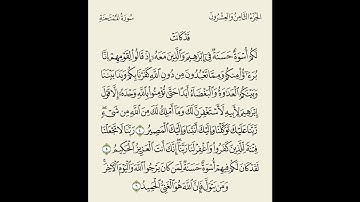 الجزء الثامن والعشرون
سورة الممتحنة
قَدْ كَانَتْ
لَكُمْ أُسْوَةٌ حَسَنَةٌ فِىٓ إِبْرَٰهِيمَ وَٱلَّذِينَ مَعَهُۥٓ إِذْ قَالُوا۟ لِقَوْمِهِمْ إِنَّا
بُرَءَٰٓؤُا۟ مِنكُمْ وَمِمَّا تَعْبُدُونَ مِن دُونِ ٱللَّهِ كَفَرْنَا بِكُمْ وَبَدَا بَيْنَنَا
وَبَيْنَكُمُ ٱلْعَدَٰوَةُ وَٱلْبَغْضَآءُ أَبَدًا حَتَّىٰ تُؤْمِنُوا۟ بِٱللَّهِ وَحْدَهُۥٓ إِلَّا قَوْلَ
إِبْرَٰهِيمَ لِأَبِيهِ لَأَسْتَغْفِرَنَّ لَكَ وَمَآ أَمْلِكُ لَكَ مِنَ ٱللَّهِ مِن شَىْءٍ
رَّبَّنَا عَلَيْكَ تَوَكَّلْنَا وَإِلَيْكَ أَنَبْنَا وَإِلَيْكَ ٱلْمَصِيرُ ٤ رَبَّنَا لَا تَجْعَلْنَا
فِتْنَةً لِّلَّذِينَ كَفَرُوا۟ وَٱغْفِرْ لَنَا رَبَّنَآ إِنَّكَ أَنتَ ٱلْعَزِيزُ ٱلْحَكِيمُ ٥
لَقَدْ كَانَ لَكُمْ فِيهِمْ أُسْوَةٌ حَسَنَةٌ لِّمَن كَانَ يَرْجُوا۟ ٱللَّهَ وَٱلْيَوْمَ ٱلْءَاخِرَ
وَمَن يَتَوَلَّ فَإِنَّ ٱللَّهَ هُوَ ٱلْغَنِىُّ ٱلْحَمِيدُ ٦